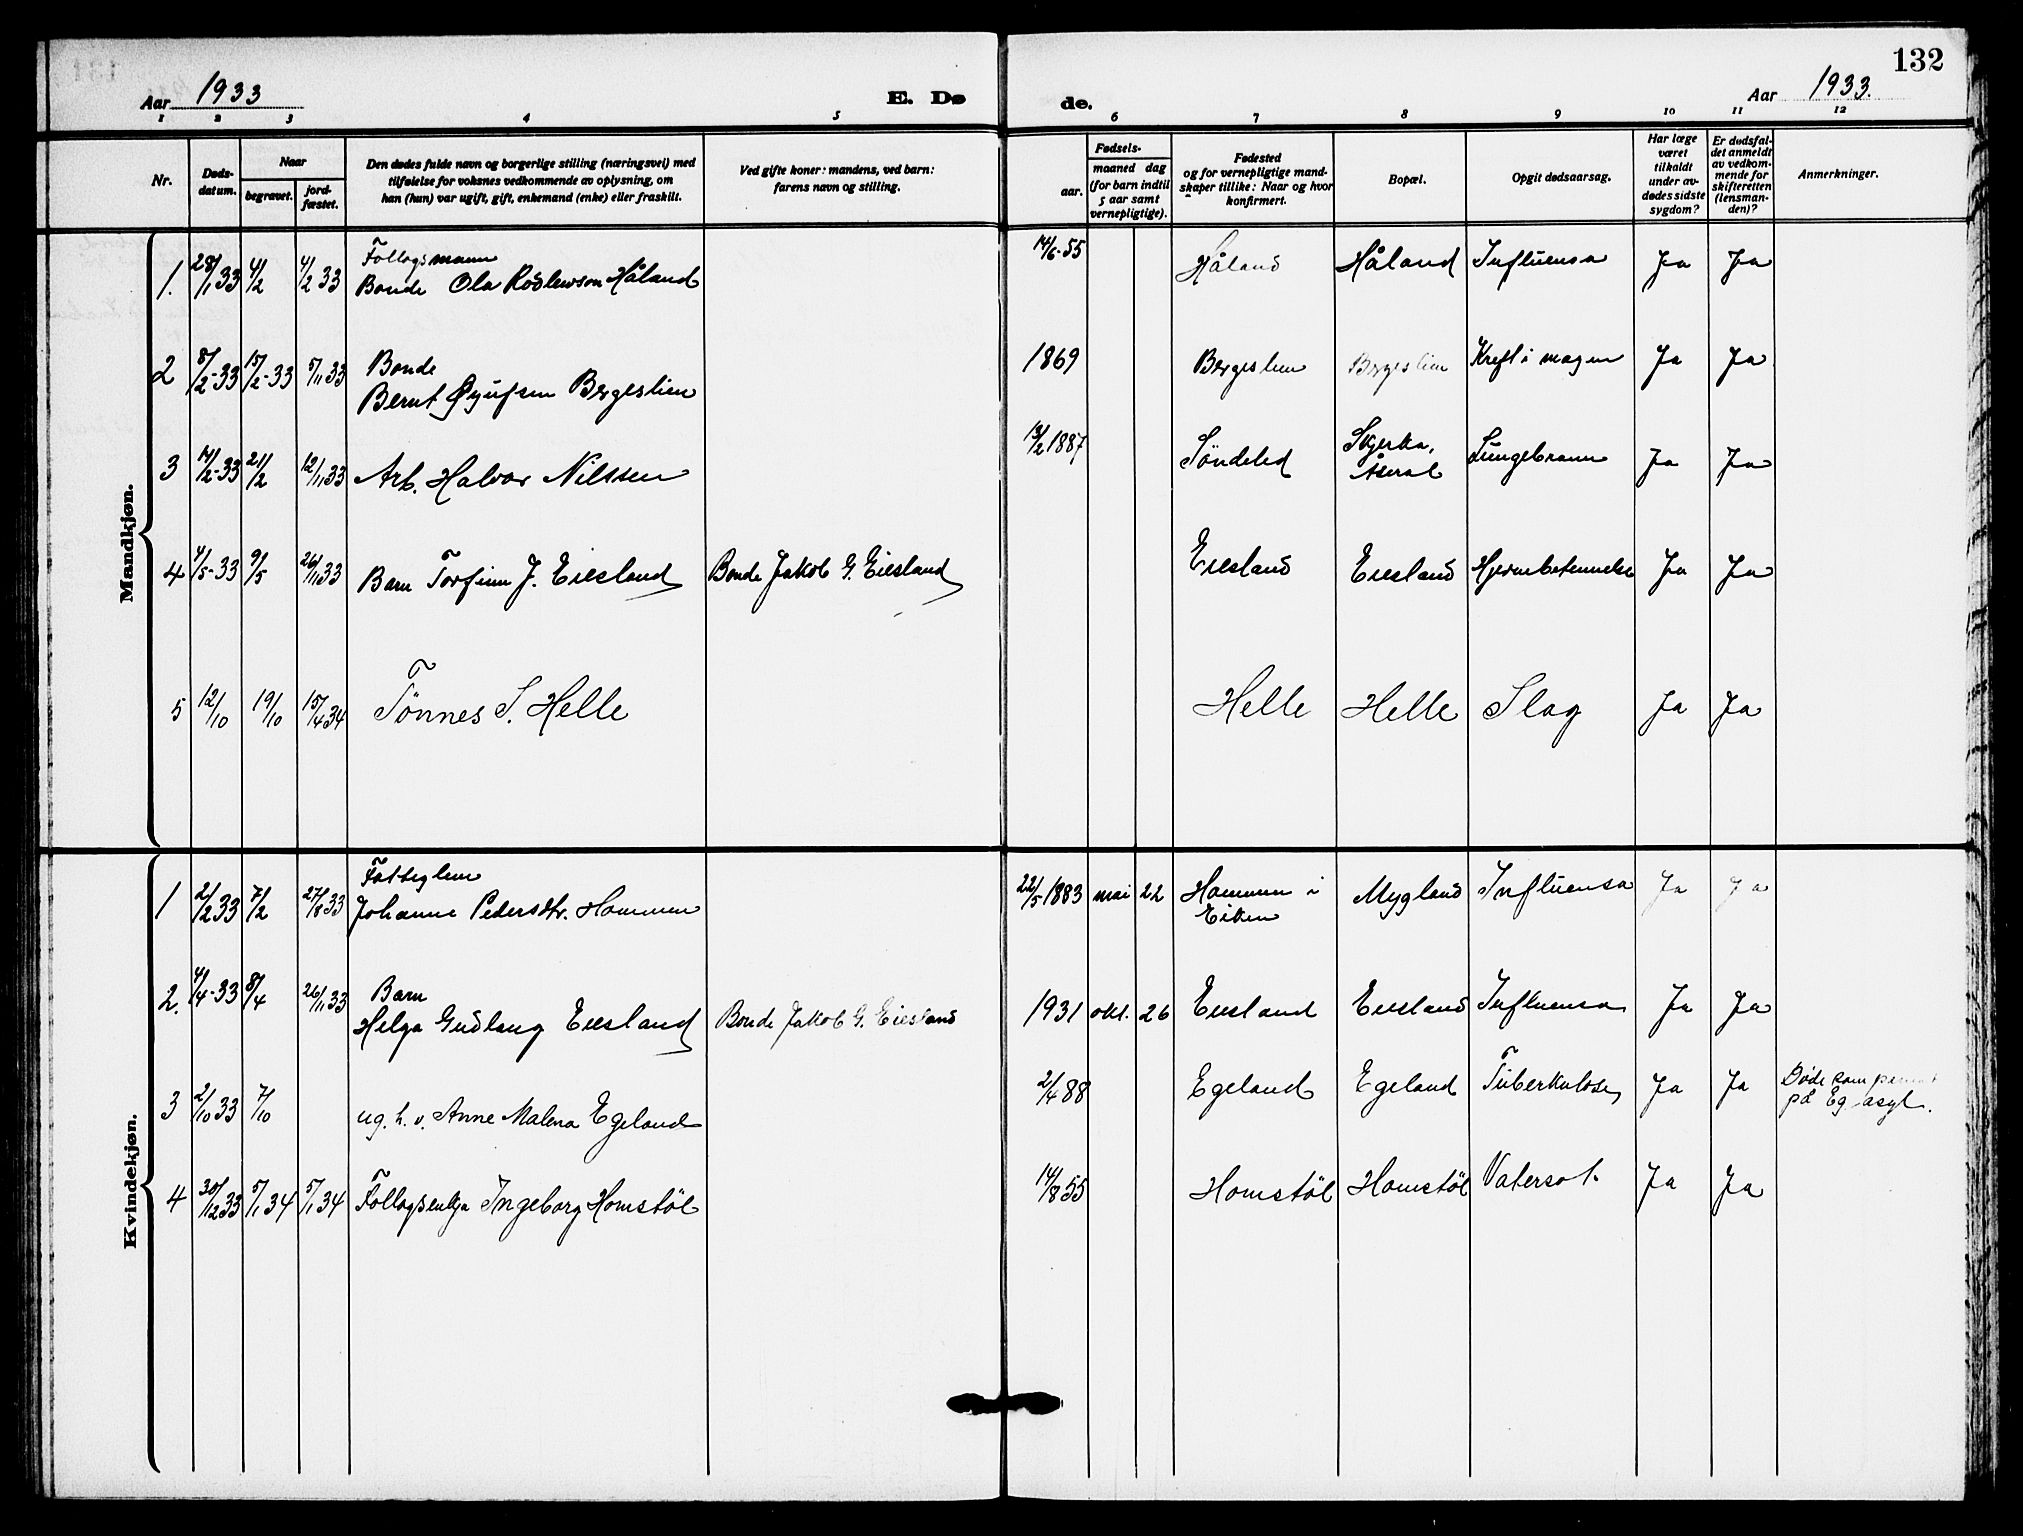 132
Aar 1933
E. Dø
de.
Aar 1933.
1 2 3 4 5 6 7 8 9 10 11 12
Nr.
Døds-
datum.
Naar
begravet.
jord-
fæstet.
Den dødes fulde navn og borgerlige stilling (næringsvei) med
tilføielse for voksnes vedkommende av oplysning, om
han (hun) var ugift, gift, enkemand (enke) eller fraskilt.
Ved gifte koner: mandens, ved barn:
farens navn og stilling.
Fødsels-
aar.
maaned dag
(for barn indtil
5 aar samt
vernepligtige).
Fødested
og for vernepligtige mand-
skaper tillike: Naar og hvor
konfirmert.
Bopæl.
Opgit dødsaarsag.
Har læge
været
tilkaldt
under av-
dødes sidste
sygdom?
Er dødsfal-
det anmeldt
av vedkom-
mende for
skifteretten
(lensman-
den)?
Anmerkninger.
Mandkjøn.
Follogsmann
1. 28/1 33 4/2 4/2 33 Bonde Ola Håland 14/6-55 Håland Håland Influensa Ja Ja
2 8/2-33 15/2-33 5/11 33 Bonde
Bernt Bergeslien 1869 Bergeslien Bergeslien Kreft i magen Ja Ja
3 14/2-33 21/2 12/11 33 Arb. Halvor Nilssen 13/2 1887 Søndeled
Åseral Lungebrann Ja Ja
4 4/5-33 9/5 26/11 33 Barn Torfinn J. Eiesland Bonde Jakob G. Eiesland Eiesland Eiesland Hjernebetennelse Ja Ja
5 12/10 19/10 15/4 34 Tønnes S. Helle Helle Helle Slag Ja Ja
Kvindekjøn.
Fattiglem
1 2/2 33 7/2 27/8 33 Johanne Pedersdtr. Hommen 22/5 1883 mai 22 Hommen i
Eiken Mygland Influensa Ja Ja
2. 4/4-33 8/4 26/11 33 Barn
Helga Gudlaug Eiesland Bonde Jakob G. Eiesland 1931 okt. 26 Eiesland Eiesland Influensa Ja Ja
3 2/10 33 7/10 ug. h. v. Anne Malena Egeland 2/4 88 Egeland Egeland Tuberkulose Ja Ja Døde som
på Eg asyl.
4 30/12 33 5/1 34 5/1 34 Follogsenkja Ingeborg Homstøl 14/8 55 Homstøl Homstøl Vatersot. Ja Ja